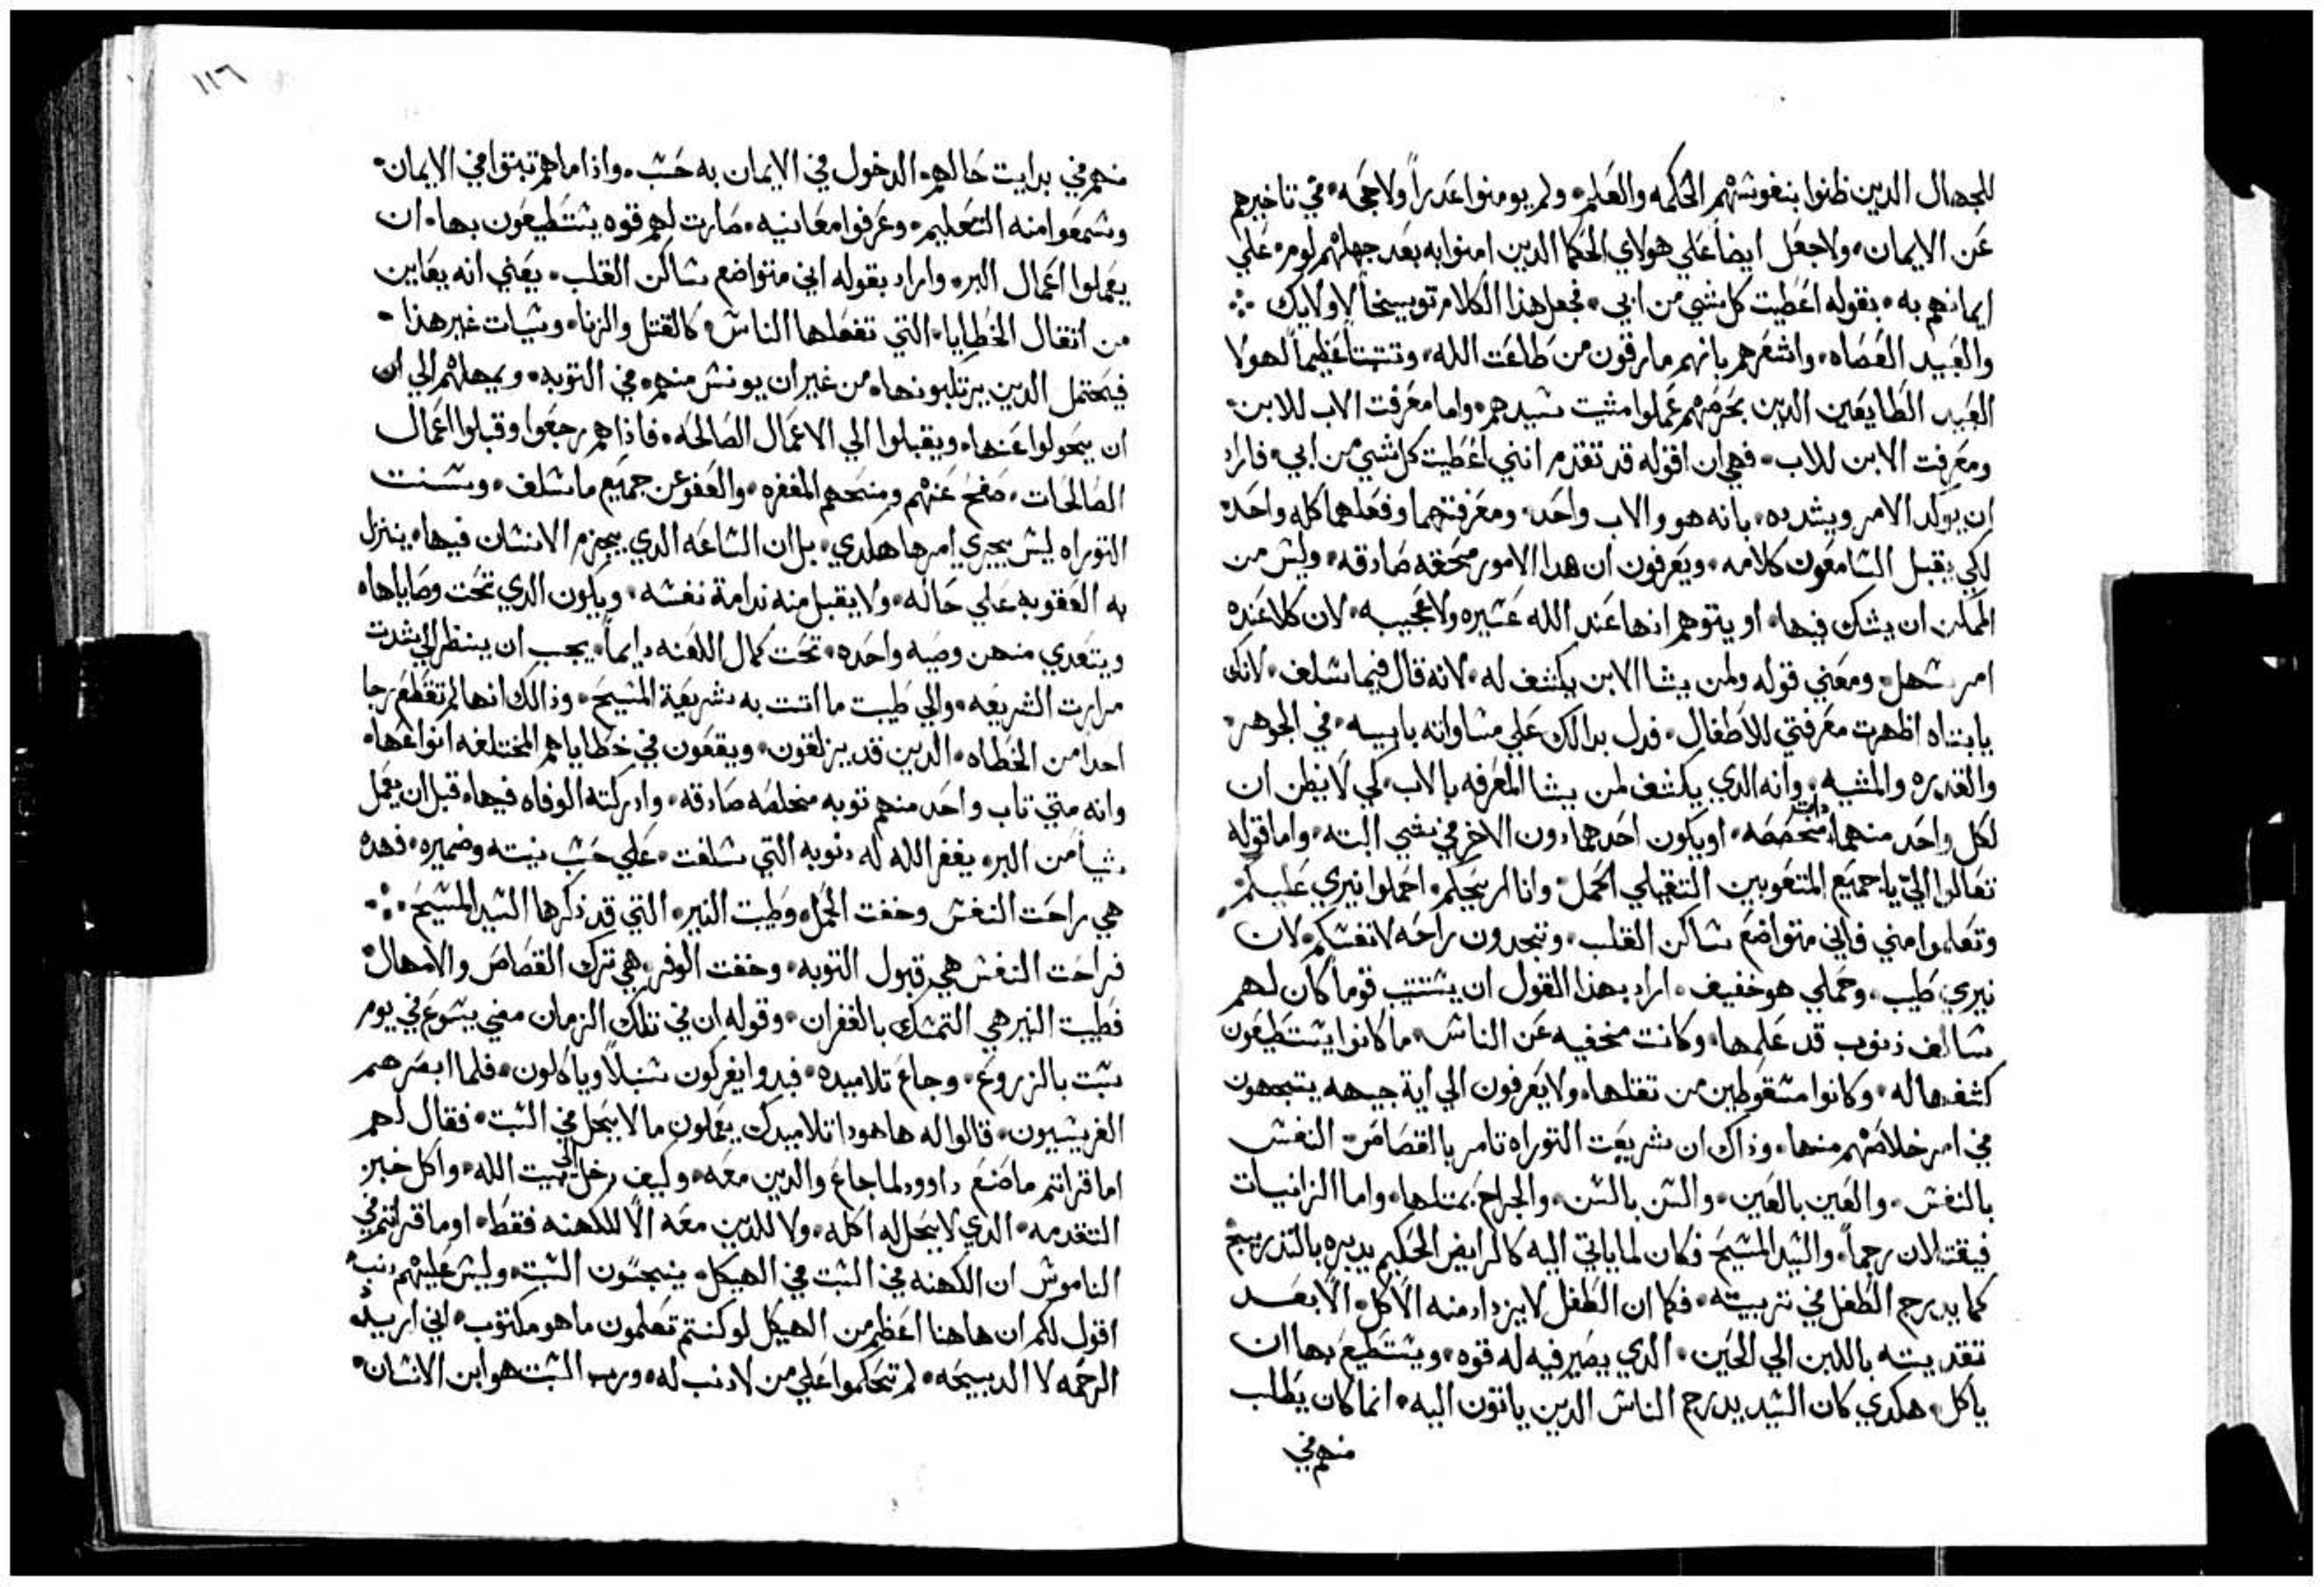 للجهال الدين ظنوا بنفوسهم الحكمه والعلم٠ ولم يومنوا عدراً ولا حجه٠ في تاخيرهم
عن الايمان٠ ولا جعل ايضاً علي هولاي الحكما الدين امنوا به بعد جهلهم لوم٠ علي
ايمانهم به٠ بقوله اعطيت كل شي من ابي٠ فجعل هذا الكلام توبيخاً لاولايك ⁘
والعبيد العصاه٠ واشعرهم بانهم مارقون من طاعت الله٠ وتتبتاً عظيماً لهولا
العبيد الطايعين الدين بحرصهم عملوا مشيت سيدهم٠ واما معرفت الاب للابن٠
ومعرفت الابن للاب٠ فهي ان اقوله قد تقدم انني اعطيت كل شي من ابي٠ فاراد
ان يوكد الامر ويشدده٠ بانه هو والاب واحد٠ ومعرفتهما وفعلهما كله واحد٠
لكي يقبل السامعون كلامه٠ ويعرفون ان هدا الامور محققه صادقه٠ وليس من
الممكن ان يشك فيها٠ او يتوهم انها عند الله عسيره ولا عجيبه٠ لان كلا عنده
امر سهل٠ ومعني قوله ولمن يشا الابن يكشف له٠ لانه قال فيما سلف٠ لانك
يا ابتاه اظهرت معرفتي للاطفال٠ فدل بدالك علي مساواته بابيه٠ في الجوهر٠
والقدره والمشيه٠ وانه الدي يكشف لمن يشا المعرفه بالاب٠ كي لا يظن ان
لكل واحد منهما دات متخصصه٠ او يكون احدهما دون الاخر في شي البته٠ واما قوله
تعالوا اليّ يا جميع المتعوبين التقيلي الحمل٠ وانا اريحكم٠ احملوا نيري عليكم٠
وتعلموا مني فاني متواضع ساكن القلب٠ وتجدون راحه لانفسكم٠ لان
نيري طيب٠ وحملي هو خفيف٠ اراد بهذا القول ان يستتيب قوماً كان لهم
سالف ذنوب قد علمها٠ وكانت مخفيه عن الناس٠ ما كانوا يستطيعون
كشفها له٠ وكانوا مسقوطين من تقلها٠ ولا يعرفون الي اية جيهه يتجهون
في امر خلاصهم منها٠ وذاك ان شريعت التوراه تامر بالقصاص٠ النفس
بالنفس٠ والعين بالعين٠ والسن بالسن٠ والجراح بمتلها٠ واما الزانيات
فيقتلان رجماً٠ والسيد المسيح فكان لما ياتي اليه كالرايض الحكيم يدبره بالتدريج
كما يدرج الطفل في تربيته٠ فكما ان الطفل لا يزداد منه الاكل٠ الا بعد
تقديته باللبن الي الحين٠ الدي يصير فيه له قوه٠ ويستطيع بها ان
ياكل٠ هكدي كان السيد يدرج الناس الدين ياتون اليه٠ انما كان يطلب
منهم في
١١٦
منهم في بدايت حالهم٠ الدخول في الايمان به حسب٠ واذا ما هم تبتوا في الايمان٠
وسمعوا منه التعليم٠ وعرفوا معانيه٠ صارت لهم قوه يستطيعون بها٠ ان
يعملوا اعمال البر٠ واراد بقوله اني متواضع ساكن القلب٠ يعني انه يعاين
من اتقال الخطايا٠ التي تفعلها الناس٠ كالقتل والزنا٠ وسيات غير هذا٠
فيحتمل الدين يرتكبونها٠ من غير ان يونس منهم٠ في التوبه٠ ويمهلهم الي ان
ان يحولوا عنها٠ ويقبلوا الي الاعمال الصالحه٠ فاذا هم رجعوا وقبلوا اعمال
الصالحات٠ صفح عنهم ومنحهم المغفره٠ والعفو عن جميع ما سلف٠ وسنت
التوراه ليس يجري امرها هكدي٠ بل ان الساعه الدي يجرم الانسان فيها٠ ينزل
به العقوبه علي حاله٠ ولا يقبل منه ندامة نفسه٠ ويكون الدي تحت وصاياها٠
ويتعدي منهن وصيه واحده٠ تحت كمال اللعنه دايماً٠ يجب ان ينظر الي شدت
مرارت الشريعه٠ والي طيبت ما اتت به شريعة المسيح٠ وذالك انها لم تقطع رجا
احداً من الخطاه٠ الدين قد يزلقون٠ ويقعون في خطاياهم المختلفه انواعها٠
وانه متي تاب واحد منهم توبه مخلصه صادقه٠ وادركته الوفاه فيها٠ قبل ان يعمل
شياً من البر٠ يغفر الله له دنوبه التي سلفت٠ علي حسب نيته وضميره٠ فهده
هي راحت النفس وخفت الحمل٠ وطيبت النير٠ التي قد ذكرها السيد المسيح ⁘
فراحت النفس هي قبول التوبه٠ وخفت الوقر هي ترك القصاص والامهال٠
فطيبت النير هي التمسك بالغفران٠ وقوله ان في تلك الزمان مضي يسوع في يوم
سبت بالزروع٠ وجاع تلاميده٠ فبدوا يفركون سنبلاً وياكلون٠ فلما ابصرهم
الفريسيون٠ قالوا له ها هودا تلاميدك يعملون ما لا يحل في السبت٠ فقال لهم
اما قراتم ما صنع داوود لما جاع والدين معه٠ وكيف دخل الي بيت الله٠ واكل خبز
التقدمه٠ الدي لا يحل له اكله٠ ولا للدين معه الا للكهنه فقط٠ او ما قراتم في
الناموس ان الكهنه في السبت في الهيكل٠ ينجسون السبت٠ وليس عليهم دنب٠
اقول لكم ان هاهنا اعظم من الهيكل لو كنتم تعلمون ما هو مكتوب٠ اني اريد
الرحمه لا الدبيحه٠ لم تحكموا علي من لا دنب له٠ ورب السبت هو ابن الانسان٠